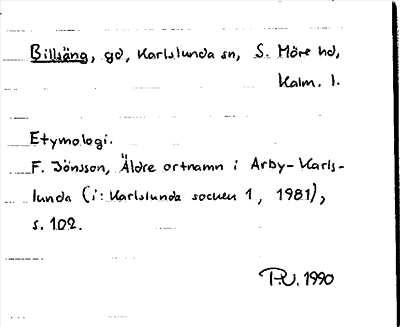 Billsäng, gd, Karlslunda sn, S. Möre hd,
Kalm. l.
Etymologi.
F. Jönsson, Äldre ortnamn i Arby-Karls-
lunda (i: Karlslunda socken 1, 1981),
s. 102.
P.U. 1990